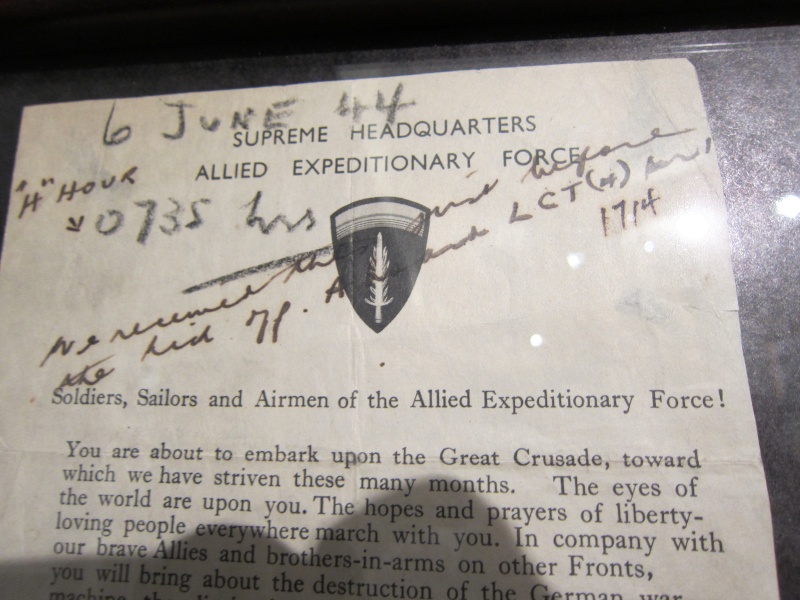 6 JUNE 44
SUPREME HEADQUARTERS
ALLIED EXPEDITIONARY FORCE
"H" HOUR
0735 hrs
We received this just before
the LCT(A)
1714
Soldiers, Sailors and Airmen of the Allied Expeditionary Force!
You are about to embark upon the Great Crusade, toward
which we have striven these many months. The eyes of
the world are upon you. The hopes and prayers of liberty-
loving people everywhere march with you. In company with
our brave Allies and brothers-in-arms on other Fronts,
you will bring about the destruction of the German war